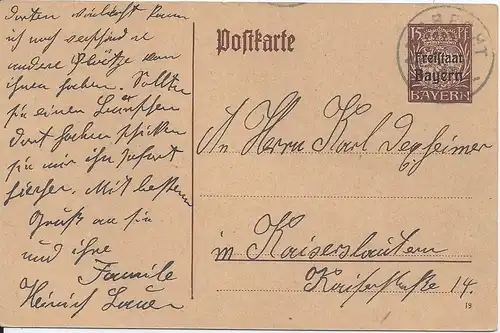 dorten vielleicht kann
ich noch verschiedene
andere Plätze von
ihnen haben. Sollten
sie einen
dort haben schicken
sie mir ihn sofort
hierher. Mit besten
Gruß an sie
und ihre
Familie
Heinrich Lauer
Postkarte
15 Pf
Freistaat
Bayern
BAYERN
An Herrn Karl Degheimer
in Kaiserslautern
Kaiserstraße 14.
19